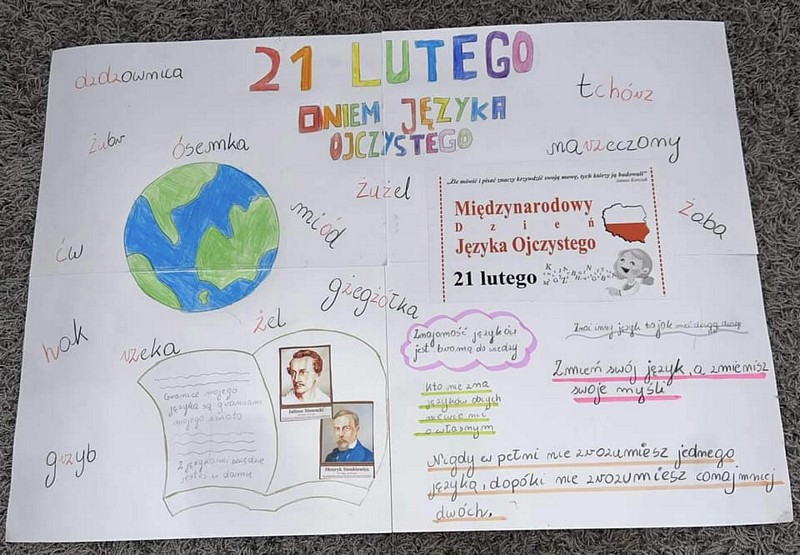 21 LUTEGO
DNIEM JĘZYKA
OJCZYSTEGO
dżdżownica
tchórz
żubr
ósemka
narzeczony
żużel
miód
żaba
ćw
gżegżółka
hak
rzeka
żel
grzyb
„Źle mówić i pisać znaczy krzywdzić swoją mowę, tych którzy ją budowali"
Janusz Korczak
Międzynarodowy
Dzień
Języka Ojczystego
21 lutego
Granice mojego
języka są granicami
mojego świata
Z językami wszędzie
jesteś w domu
Juliusz Słowacki
Henryk Sienkiewicz
Znajomość języków
jest bramą do wiedzy
Znać inny język to jak mieć drugą duszę
Kto nie zna
języków obcych
nie wie nic
o własnym
Zmień swój język, a zmienisz
swoje myśli
Nigdy w pełni nie zrozumiesz jednego
języka, dopóki nie zrozumiesz conajmniej
dwóch.